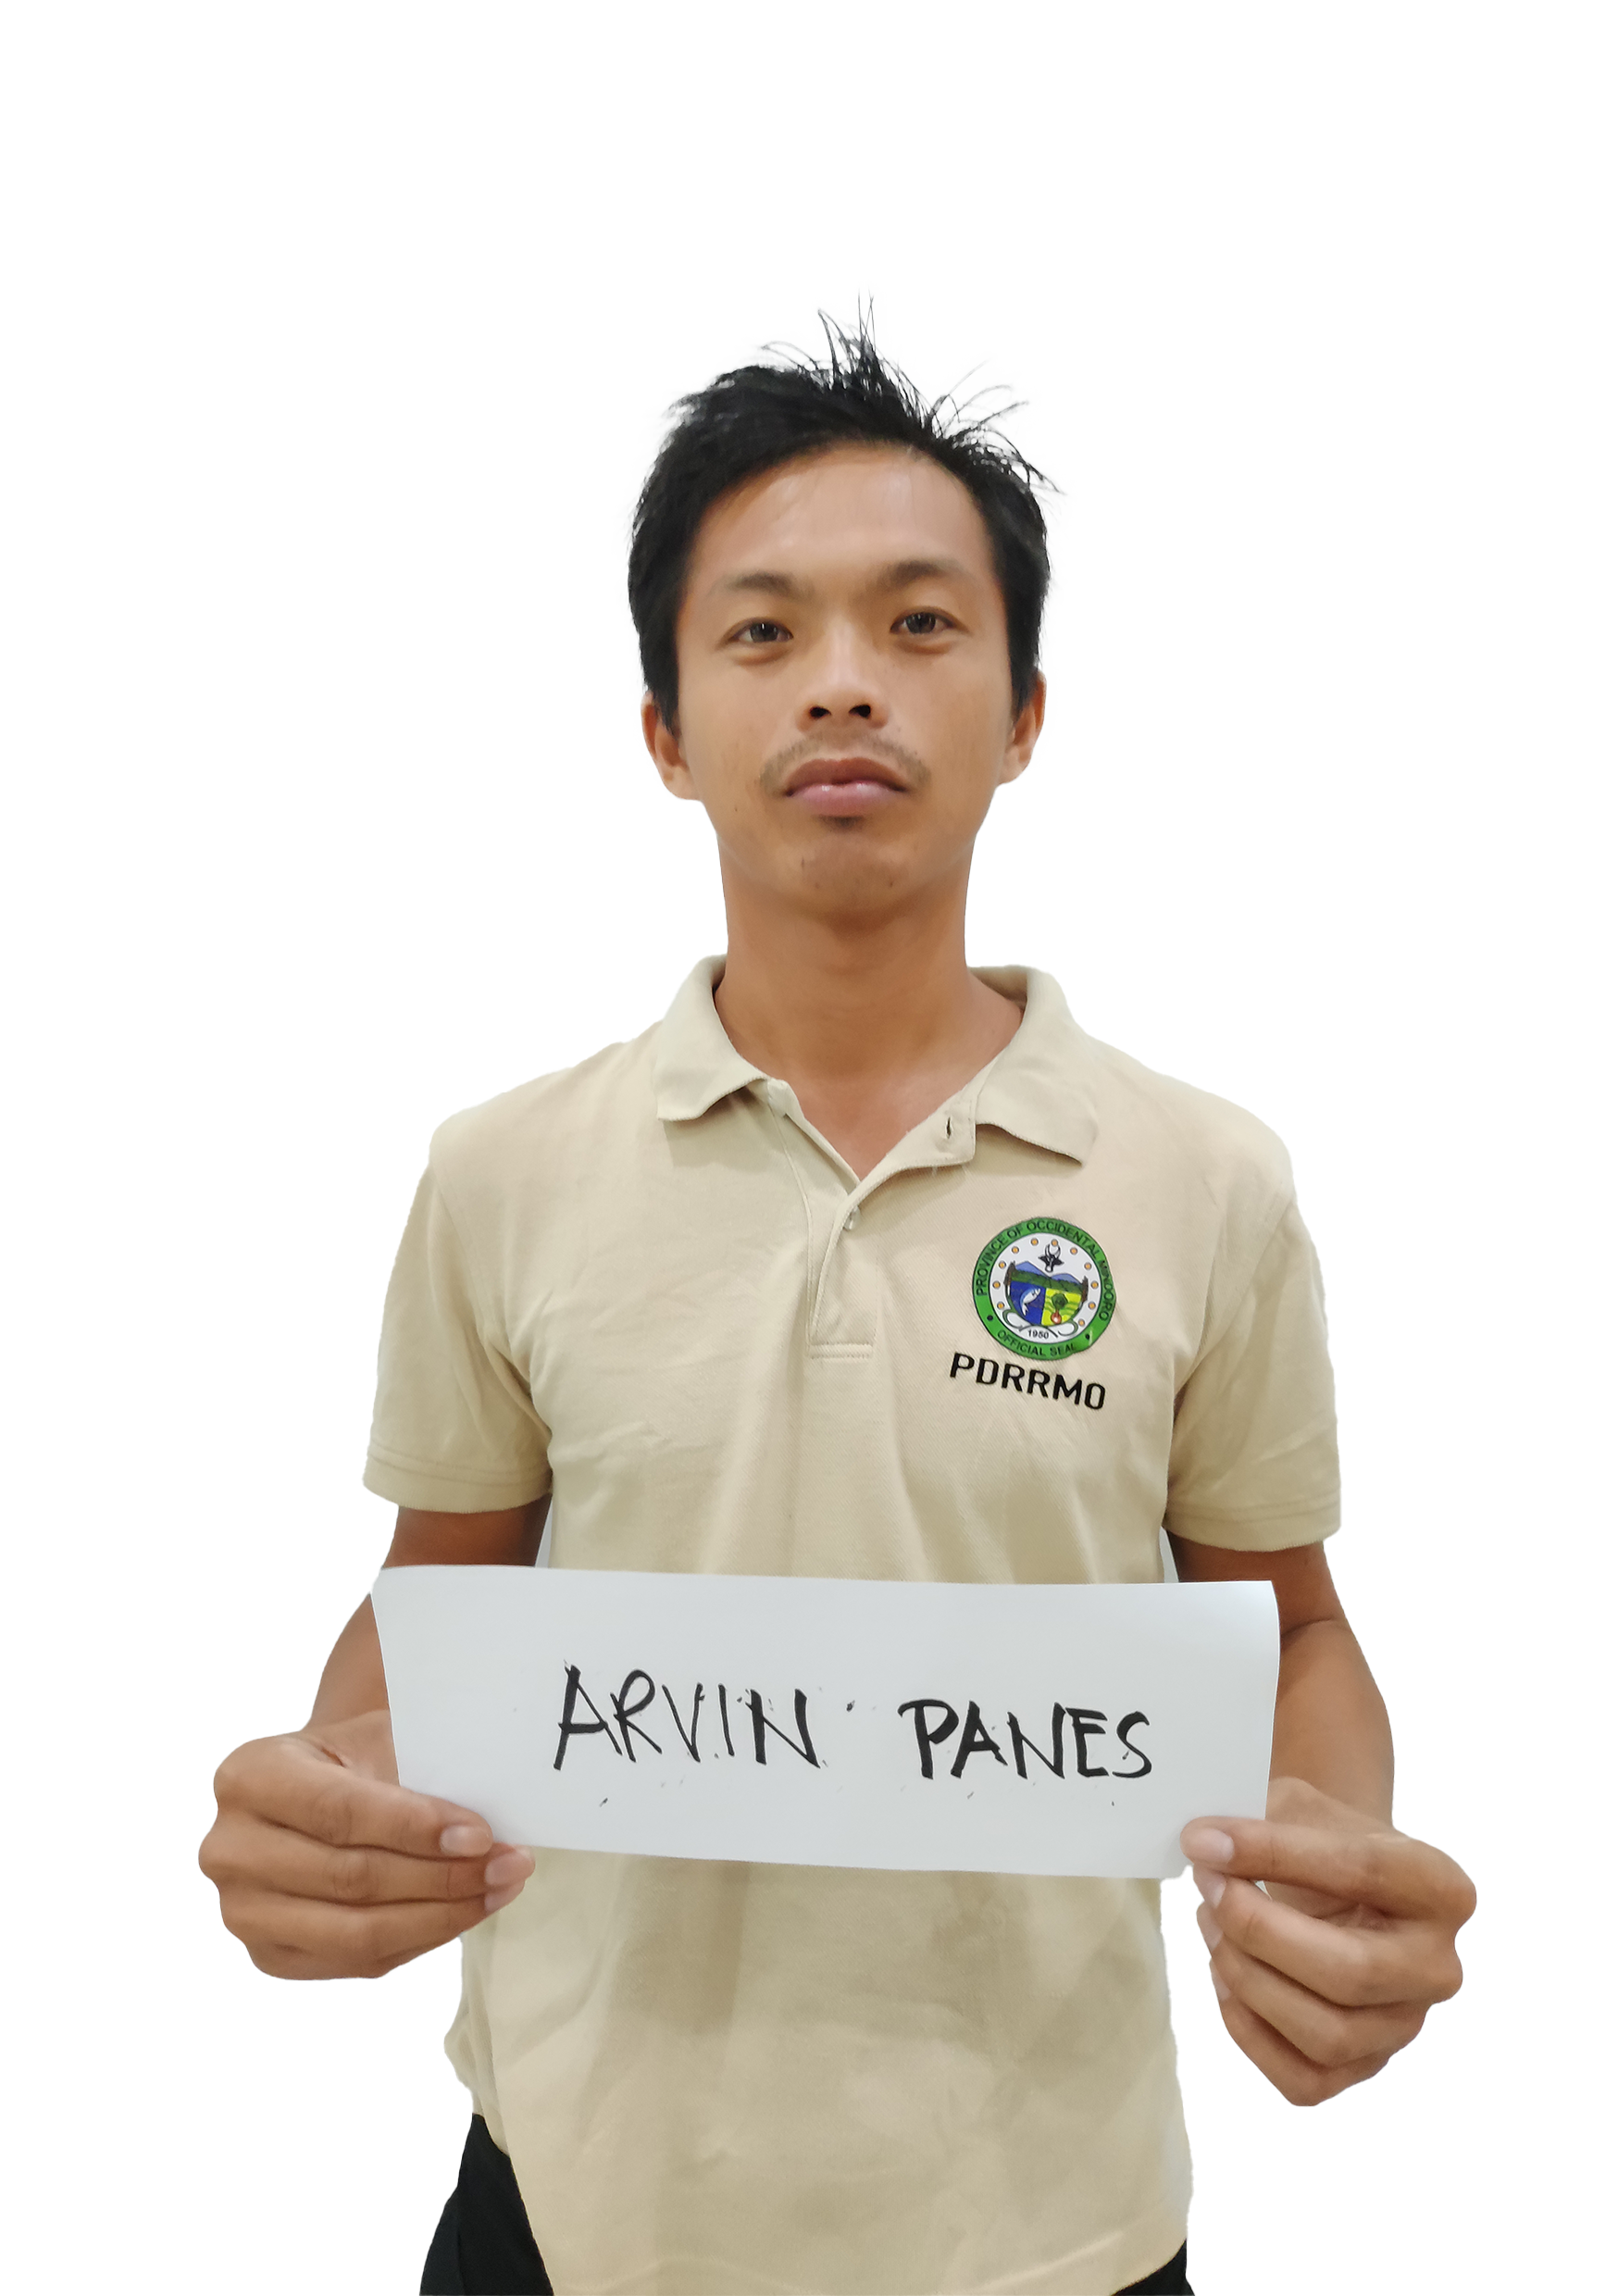 PROVINCE OF OCCIDENTAL MINDORO
1950
OFFICIAL SEAL
PDRRMO
ARVIN PANES